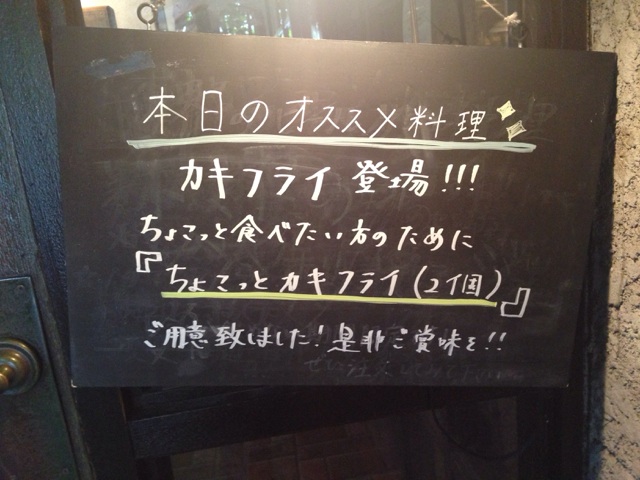 本日のオススメ料理
カキフライ登場!!!
ちょこっと食べたい方のために
『ちょこっとカキフライ(2個)』
ご用意致しました!是非ご賞味を!!